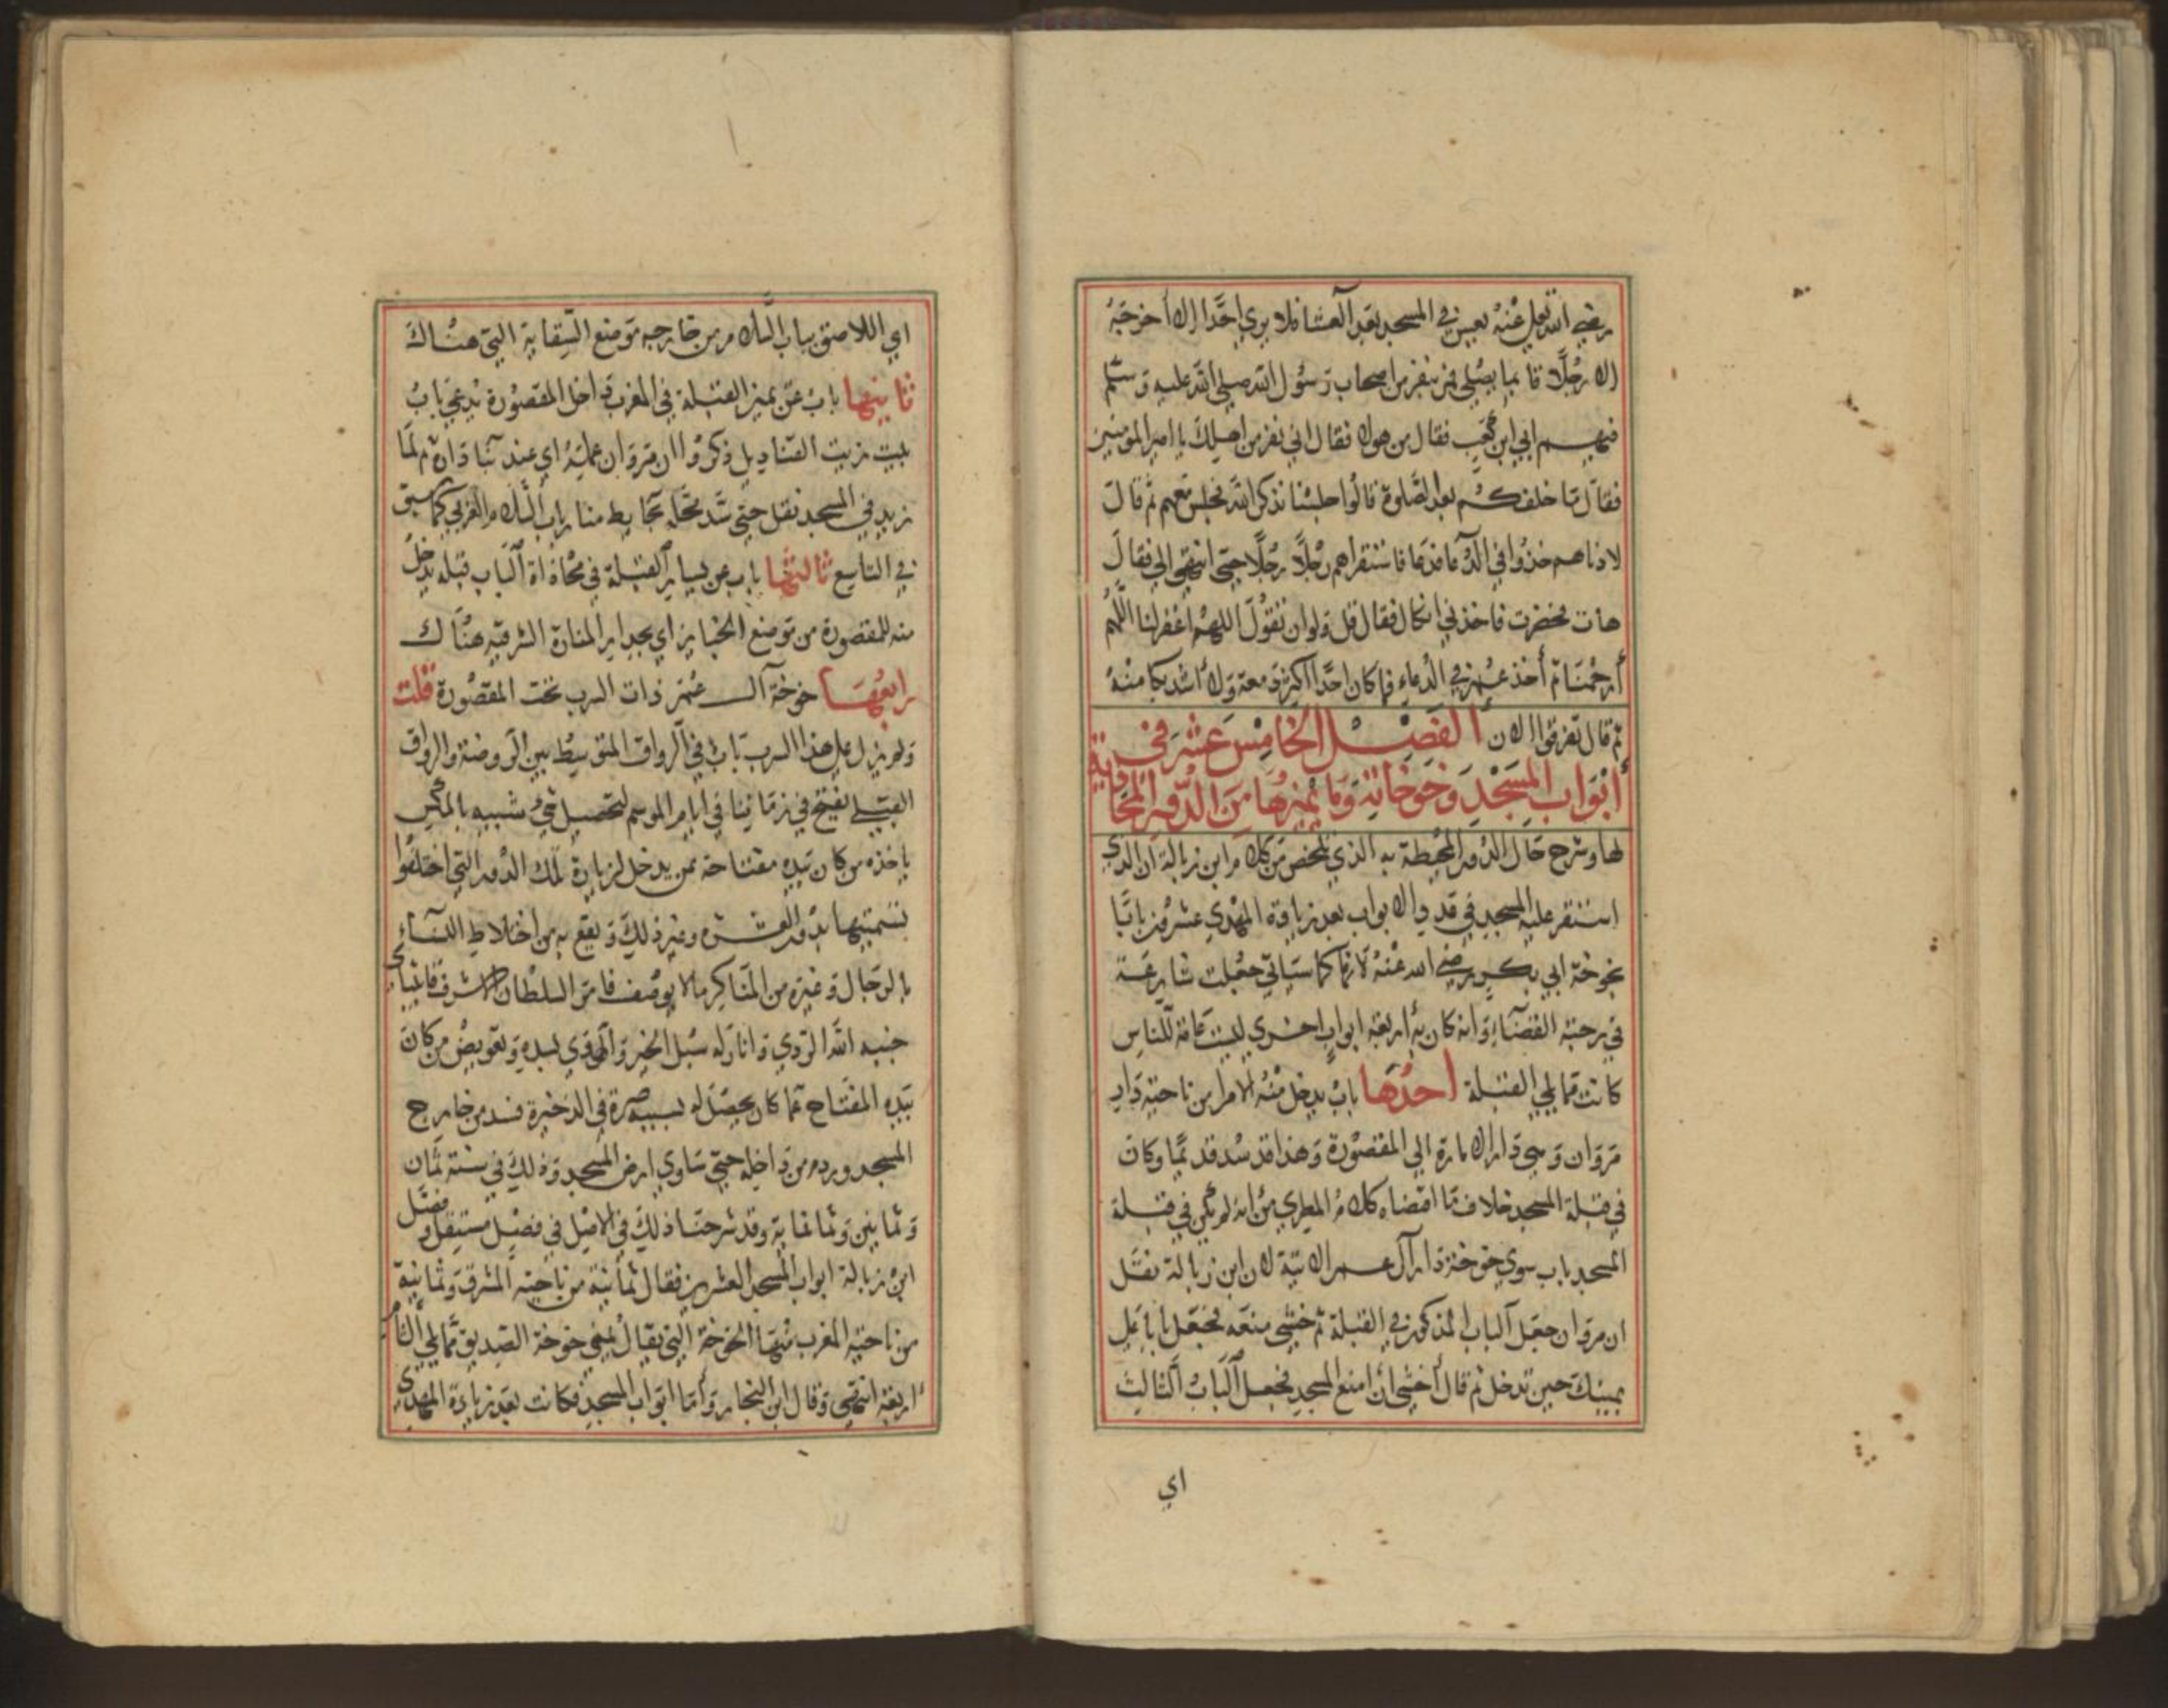 رضي الله تعالى عنه يعس في المسجد بعد العشا فلا يرى احدا الا أخرجه
الا رجلا قايما يصلي فمر بنفر من اصحاب رسول الله صلى الله عليه وسلم
فيهم ابي ابن كعب فقال من هولا فقال ابي نفر من اهلك يا امير المومنين
فقال ما خلفكم بعد الصلوة قالوا جلسنا نذكر الله فجلس معهم ثم قال
لادناهم خذوا في الدعا فدعا فاستقراهم رجلا رجلا حتى انتهى الي فقال
هات فحضرت فاخذني افكال فقال قل ولو ان تقول اللهم اغفر لنا اللهم
أرحمنا ثم أخذ عمر في الدعاء فما كان احدا اكثر دمعة ولا أشد بكا منه
ثم قال تفرقوا الان الفصل الخامس عشر في
أبواب المسجد وخوخاته وما يميزها من الدور المحاذية
لها وشرح حال الدور المحيطة به الذي تلخص من كلام ابن زبالة ان الذي
استقر عليه المسجد في عدد الابواب بعد زيادة المهدي عشرون بابا
بخوخة ابي بكر رضي الله عنه لانها كما سياتي جعلت شارعة
في رحبة القضاء وانه كان به أربعة ابواب اخرى ليست عامة للناس
كانت مما يلي القبلة احدها باب يدخل منه الامرا من ناحية دار
مروان وهي دار الامارة الى المقصورة وهذا قد سد قديما وكان
في قبلة المسجد خلاف ما اقتضاه كلام المطري من انه لم يكن في قبلة
المسجد باب سوى خوخة دار آل عمر الاتية لان ابن زبالة نقل
ان مروان جعل الباب المذكور في القبلة ثم خشي منعه فجعل بابا على
يمينك حين تدخل ثم قال أخشى ان امنع المسجد فجعل الباب الثالث
اي
اي اللاصق بباب السلام من خارجه موضع السقاية التي هناك
ثانيها باب عن يمين القبلة في المغرب داخل المقصورة يدعي باب
بيت زيت القناديل ذكروا ان مروان عمله اي عند بنا داره ثم لما
زيد في المسجد نقل حتى سد محله بحايط منار باب السلام الغربي كما سبق
في التاسع ثالثها باب عن يسار القبلة في محاذاة الباب قبله يدخل
منه للمقصورة من موضع الجنايز اي بجدار المنارة الشرقيه هناك
رابعها خوخة آل عمر ذات السرب تحت المقصورة قلت
ولم يزل على هذا السرب باب في الرواق المتوسط بين الروضة والرواق
القبلي يفتح في زماننا في ايام الموسم لتحصيل شي شبيه بالمكس
ياخذه من كان بيده مفتاحه ممن يدخل لزيارة تلك الدور التي اختلقوا
تسميتها بدور العشرة وغير ذلك ويقع به من اختلاط النساء
بالرجال وغيره من المناكر ما لا يوصف فامر السلطان الاشرف قايتباي
جنبه الله الردي وانار له سبل الخير والهدي بسده وتعويض من كان
بيده المفتاح عما كان يحصل له بسببه صرة في الذخيرة فسد من خارج
المسجد وردم من داخله حتى ساوى ارض المسجد وذلك في سنة ثمان
وثمانين وثمانماية وقد شرحنا ذلك في الاصل في فصل مستقل وفصل
ابن زبالة ابواب المسجد العشرين فقال ثمانية من ناحية المشرق وثمانية
من ناحية المغرب منها الخوخة التي يقال يعني خوخة الصديق مما يلي الشام
أربعة انتهى وقال ابن النجار وأما ابواب المسجد فكانت بعد زيادة المهدي